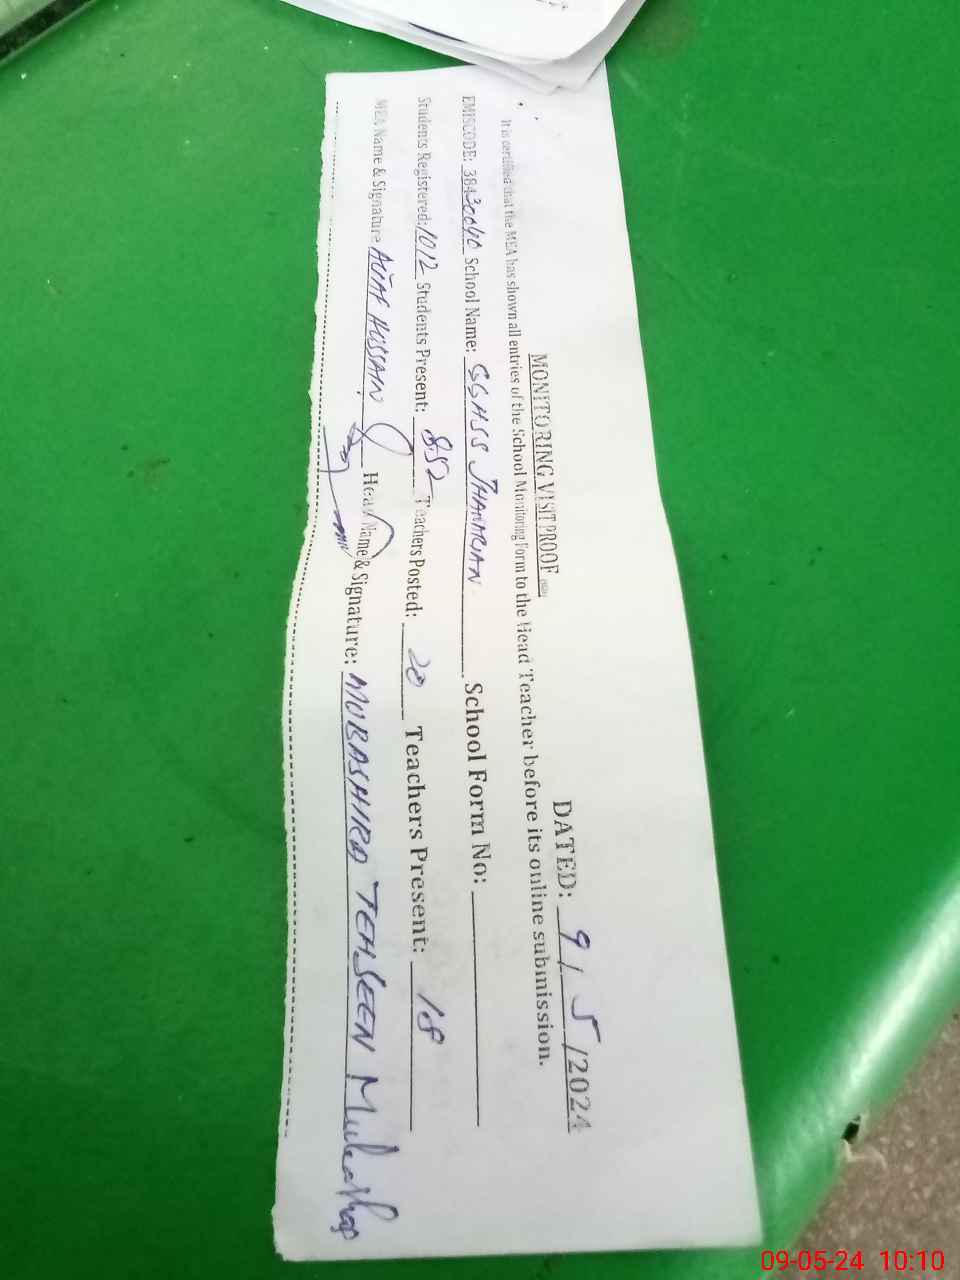 MONITORING VISIT PROOF
DATED: 9/5/2024
It is certified that the MEA has shown all entries of the School Monitoring Form to the Head Teacher before its online submission.
EMISCODE: 38430040 School Name: GGHSS JHAWARIAN School Form No:
Students Registered: 1012 Students Present: 852 Teachers Posted: 20 Teachers Present: 18
MEA Name & Signature ALTAF HUSSAIN Head Name & Signature: MUBASHIRA TEHSEEN
09-05-24 10:10